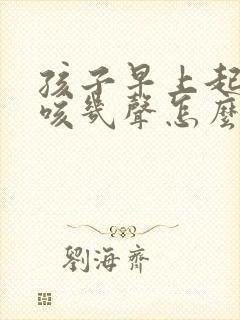 孩子早上起
咳幾聲怎麼
劉海齊